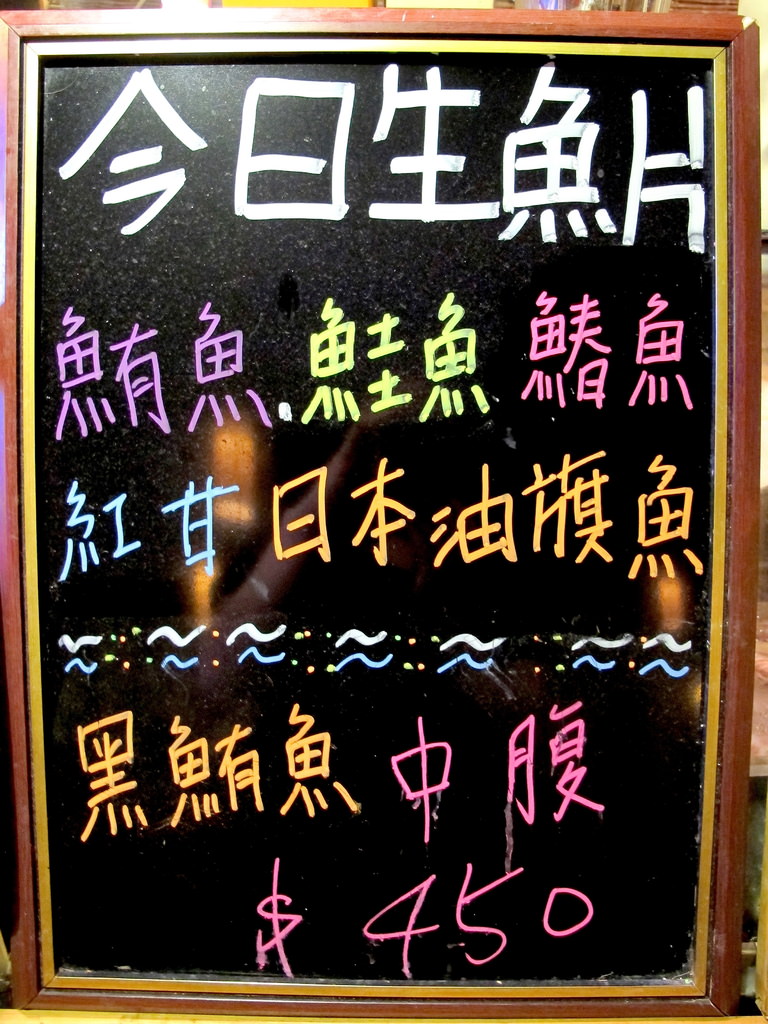 今日生魚片
鮪魚.鮭魚 鰆魚
紅甘 日本油旗魚
黑鮪魚 中腹
$ 450